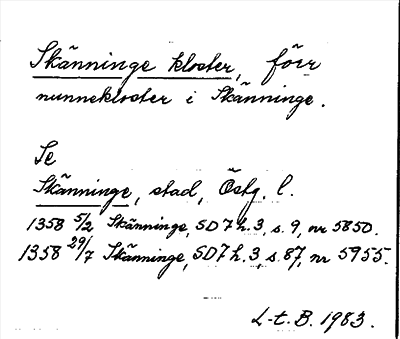 Skänninge kloster, förr
nunnekloster i Skänninge.
Se
Skänninge, stad, Östg. l.
1358 5/2 Skänninge, SD7 h.3, s.9, nr 5850.
1358 29/7 Skänninge, SD7 h.3, s.87, nr 5955.
L-t.B. 1983.